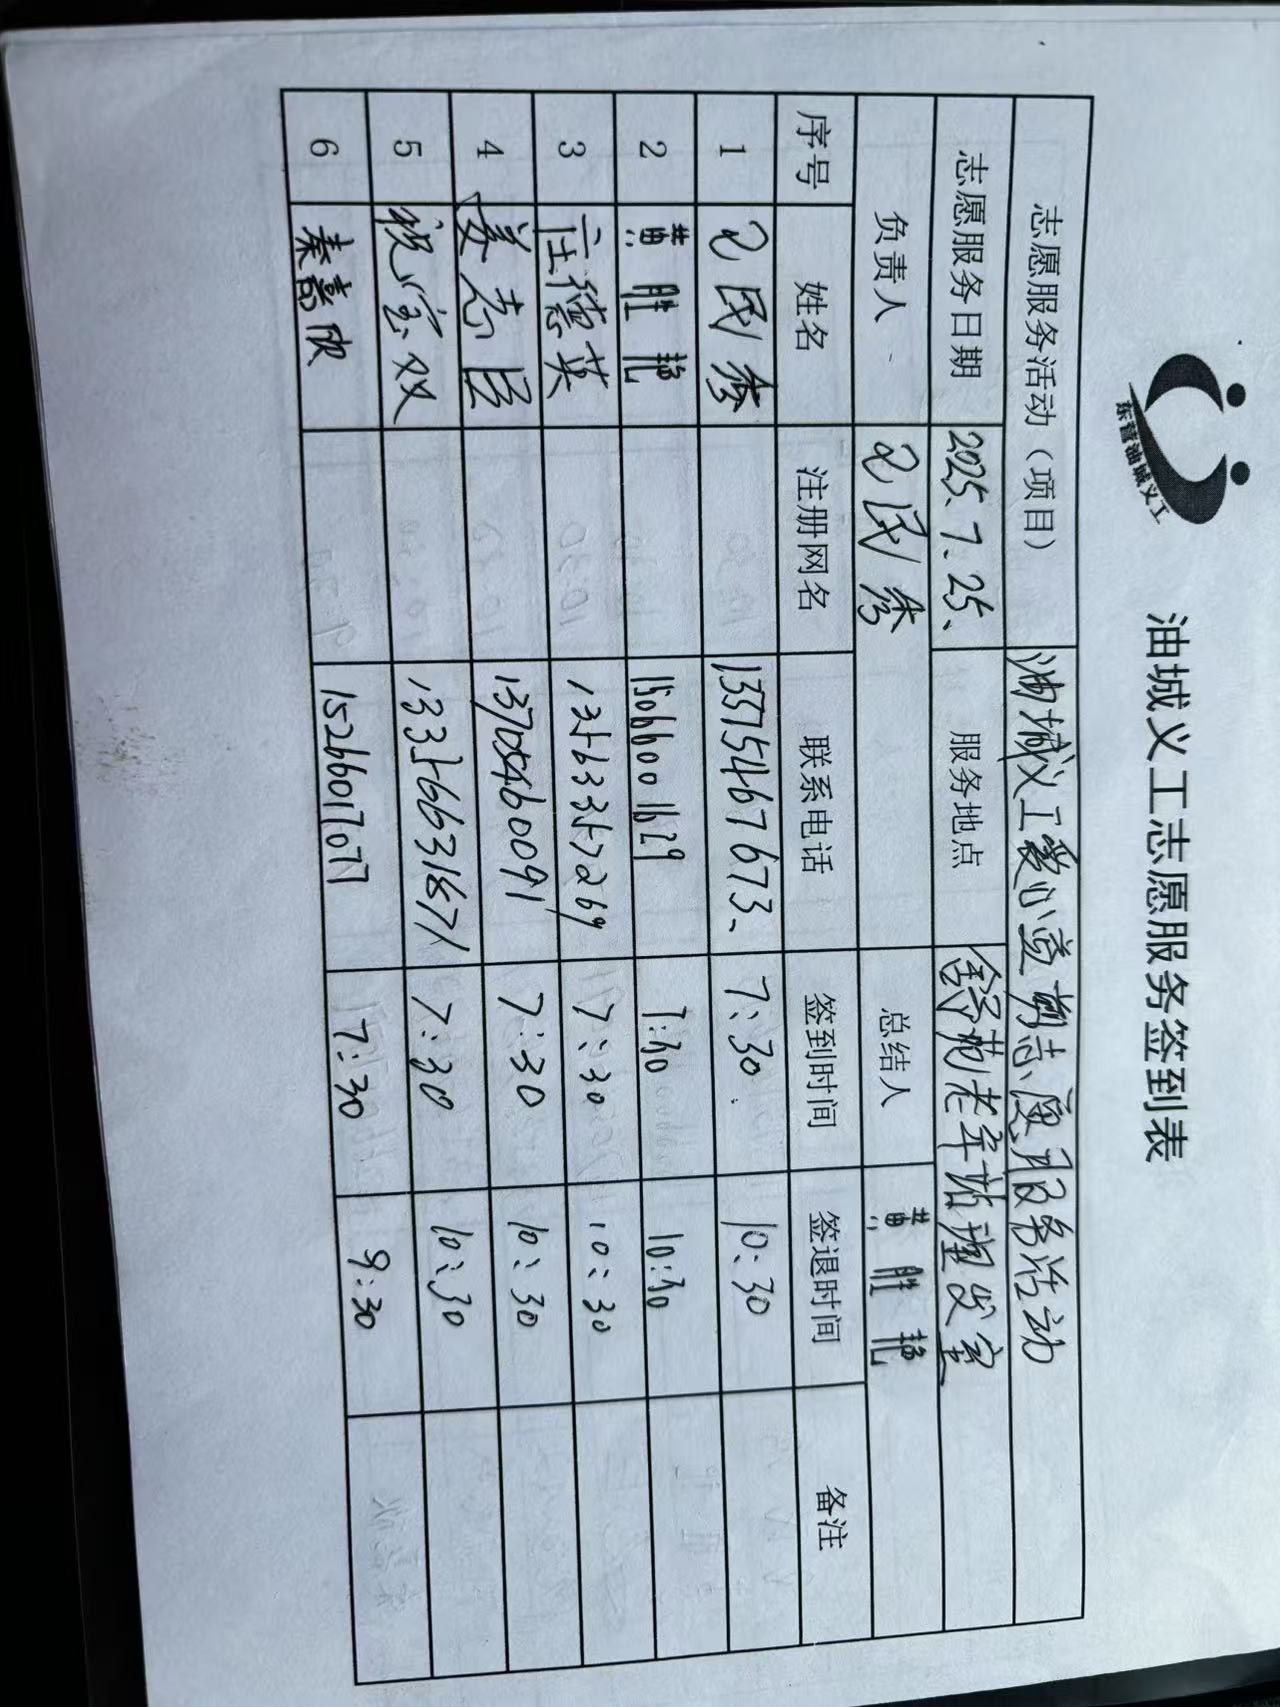 东营油城义工
油城义工志愿服务签到表
志愿服务活动（项目） 油城义工爱心益朝志愿服务活动
志愿服务日期 2025.7.25、 服务地点 锦苑老年站理发室
负责人 民秀 总结人 黄胜艳
序号 姓名 注册网名 联系电话 签到时间 签退时间 备注
1 民秀 13375467673、 7:30 10:30
2 黄胜艳 15066001629 7:30 10:30
3 德英 13563357269 7:30 10:30
4 姜志臣 13705460091 7:30 10:30
5 祝宝双 13356631671 7:30 10:30
6 秦嘉欣 15266017077 7:30 9:30